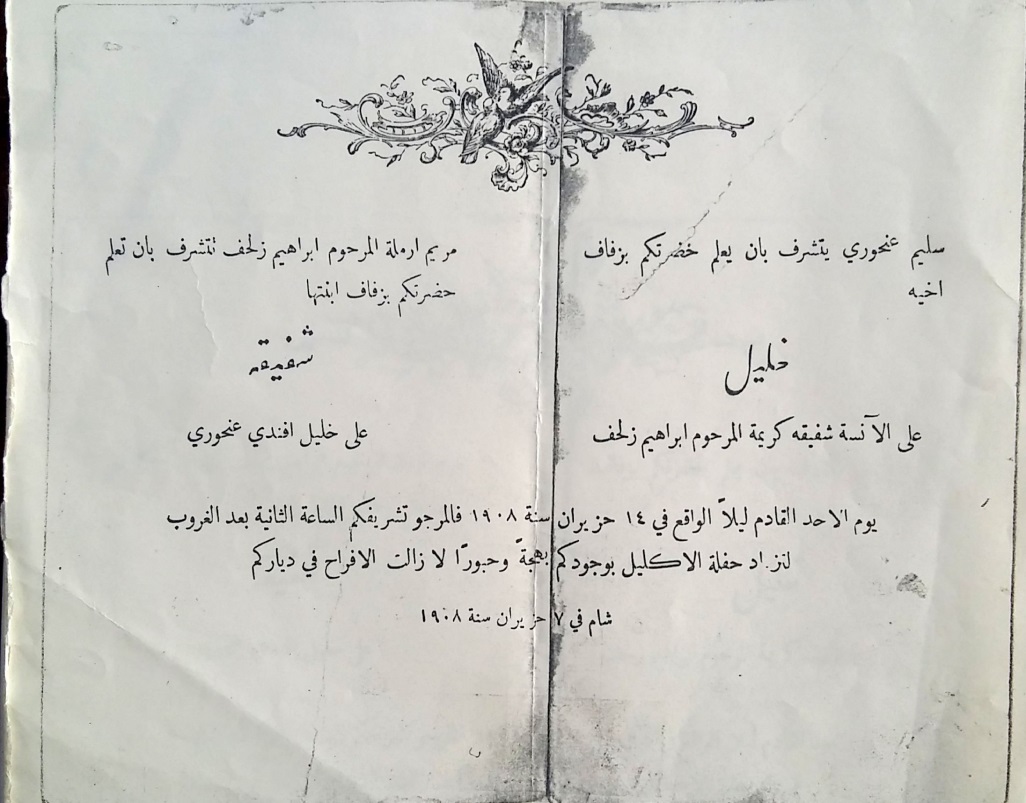 سليم عنحوري يتشرف بان يعلم حضرتكم بزفاف
اخيه
خليل
على الآنسة شفيقه كريمة المرحوم ابراهيم زلحف
مريم ارملة المرحوم ابراهيم زلحف تتشرف بان تعلم
حضرتكم بزفاف ابنتها
شفيقه
على خليل افندي عنحوري
يوم الاحد القادم ليلاً الواقع في ١٤ حزيران سنة ١٩٠٨ فالمرجو تشريفكم الساعة الثانية بعد الغروب
لتزداد حفلة الاكليل بوجودكم بهجةً وحبورًا لا زالت الافراح في دياركم
شام في ٧ حزيران سنة ١٩٠٨